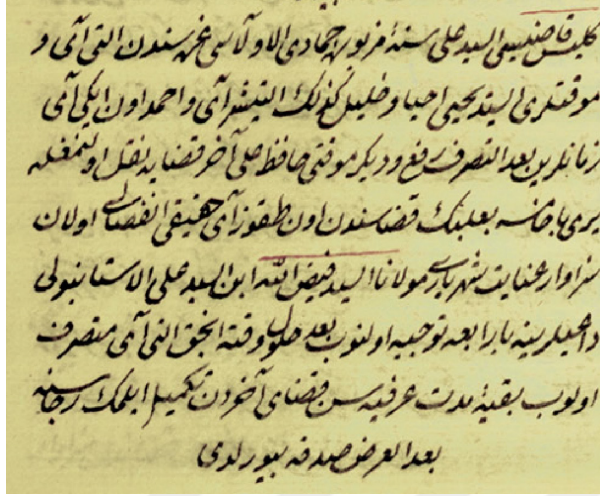 كليس قاضيسى السيد على سنۀ مزبوره جمادى الاولاسى غره سندن التى آى و
موقتلرى السيد يحيى احيا و خليل كذلك التيشر آى و احمد اون ايكى آى
زمانلرين بعد التصرف رفع و ديكر موقتى حافظ على آخر قضايه نقل اولنمغله
يرى باخانه بعلبك قضاسندن اون طقوز آى حقيقى انفصالى اولان
سزاوار عنايت شهريارى مولانا السيد فيض الله ابن السيد على الاستانبولى
داعيلرينه بارابعه توجيه اولنوب بعد حلول وقته انجق التى آى متصرف
اولوب بقيۀ مدت عرفيه سن قضاى آخردن تكميل ايلمك رجاسنه
بعد العرض صدقه بيورلدى